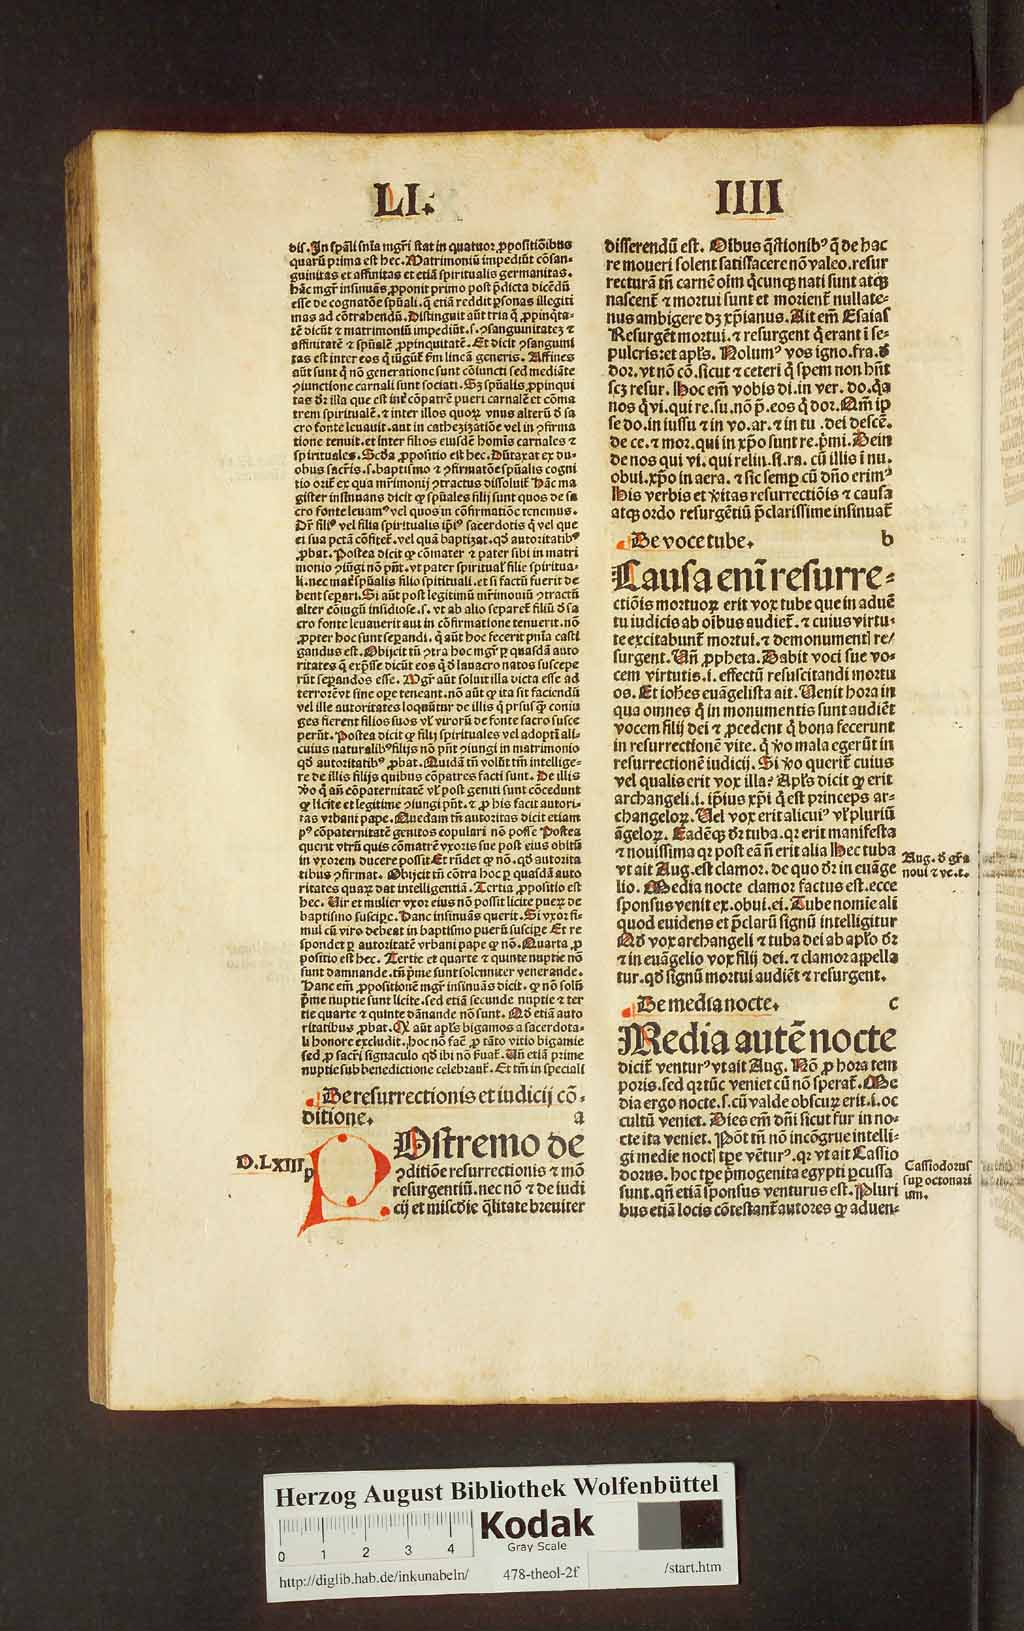 LI. IIII
dis. In sp̄ali snīa mgr̄i stat in quatuor ꝓpositiōibus
quarū prima est hec. Matrimoniū impediūt cōsan-
guinitas et affinitas et etiā spiritualis germanitas.
hāc mgr̄ insinuās ꝓponit primo post p̄dicta dicēdū
esse de cognatōe spūali. q̄ etiā reddit ꝑsonas illegiti
mas ad cōtrahendū. Distinguit aūt tria q̄ ꝓpinq̄ta-
tē dicūt ⁊ matrimoniū impediūt. s. ꝯsanguinitatez ⁊
affinitatē ⁊ spūalē ꝓpinquitatē. Et dicit ꝯsanguini
tas est inter eos q̄ iūgūt̄ s̄m lineā generis. Affines
aūt sunt q̄ nō generatione sunt cōiuncti sed mediāte
ꝯiunctione carnali sunt sociati. Sꝫ spūalis ꝓpinqui
tas dr̄ illa que est int̄ cōpatrē pueri carnalē et cōma
trem spiritualē. ⁊ inter illos quoꝝ vnus alterū d̄ sa
cro fonte leuauit. aut in cathezizatiōe vel in ꝯfirma
tione tenuit. et inter filios eiusdē homīs carnales ⁊
spirituales. Scd̄a ꝓpositio est hec. Dūtaxat ex du-
obus sacr̄is. s. baptismo ⁊ ꝯfirmatōe spūalis cogni
tio orit̄ ex qua mr̄imonij ꝯtractus dissoluit̄ hāc ma
gister insinuans dicit ꝙ spūales filij sunt quos de sa
cro fonte leuamꝰ vel quos in cōfirmatiōe tenemus.
Dr̄ filiꝰ vel filia spiritualis ip̄iꝰ sacerdotis q̄ vel que
ei sua pctā cōfitet̄. vel quā baptizat. qd̄ autoritatibꝰ
ꝓbat. Postea dicit ꝙ cōmater ⁊ pater sibi in matri
monio ꝯiūgi nō pn̄t. vt pater spiritual̄ filie spiritua-
li. nec mat̄ spūalis filio spirituali. et si factū fuerit de
bent separi. Si aūt post legitimū mr̄imoniū ꝯtractū
alter cōiugū insidiose. s. vt ab alio separet̄ filiū d̄ sa
cro fonte leuauerit aut in cōfirmatione tenuerit. nō
ꝓpter hoc sunt seꝑandi. q̄ aūt hoc fecerit pn̄ia casti
gandus est. Obijcit tn̄ ꝯtra hoc mgr̄ ꝑ quasdā auto
ritates q̄ exp̄sse dicūt eos q̄ d̄ lauacro natos suscepe
rūt seꝑandos esse. Mgr̄ aūt soluit illa dicta esse ad
terrorē vt sine oꝑe teneant. nō aūt ꝙ ita sit faciendū
vel ille autoritates loquūtur de illis q̄ prsus q̄ coniu
ges fierent filios suos vl̄ virorū de fonte sacro susce
perūt. Postea dicit ꝙ filij spirituales vel adoptī ali-
cuius naturalibꝰ filijs nō pn̄t ꝯiungi in matrimonio
qd̄ autoritatibꝰ ꝓbat. Quidā tn̄ volūt tm̄ intellige-
re de illis filijs quibus cōpatres facti sunt. De illis
v̄o q̄ añ cōpaternitatē vl̄ post geniti sunt cōcedunt
ꝙ licite et legitime ꝯiungi pn̄t. ⁊ ꝓ his facit autori-
tas vrbani pape. Quedam tn̄ autoritas dicit etiam
pꝰ cōpaternitatē genitos copulari nō posse Postea
querit vtrū quis cōmatrē vxoris sue post eius obitū
in vxorem ducere possit Et rn̄det ꝙ nō. qd̄ autorita
tibus ꝯfirmat. Obijcit tn̄ cōtra hoc ꝑ quasdā auto
ritates quaꝝ dat intelligentiā. Tertia ꝓpositio est
hec. Vir et mulier vxor eius nō possūt licite pueꝝ de
baptismo suscipe. Hanc insinuās querit. Si vxor si-
mul cū viro debeat in baptismo puerū suscipe Et re
spondet ꝑ autoritatē vrbani pape ꝙ nō. Quarta ꝓ
positio est hec. Tertie et quarte ⁊ quinte nuptie nō
sunt damnande. tn̄ p̄me sunt solenniter venerande.
Hanc em̄ ꝓpositionē mgr̄ insinuās dicit. ꝙ nō solū
p̄me nuptie sunt licite. sed etiā secunde nuptie ⁊ ter
tie quarte ⁊ quinte dānande nō sunt. Ad etiā auto
ritatibus ꝓbat. Qz aūt apl̄s bigamos a sacerdota-
li honore excludit. hoc nō fac̄ ꝓ tāto vitio bigamie
sed ꝓ sacr̄i signaculo qd̄ ibi nō s̄uat̄. Vn̄ etiā prime
nuptie sub benedictione celebrant̄. Et tm̄ in speciali
De resurrectionis et iudicij cō-
ditione. a
D. LXIII
p
Ostremo de
ꝯditiōe resurrectionis ⁊ mō
resurgentiū. nec nō ⁊ de iudi
cij et miscd̄ie q̄litate breuiter
disserendū est. Oībus q̄stionibꝰ q̄ de hac
re moueri solent satissacere nō valeo. resur
recturā tn̄ carnē oīm q̄cunqꝫ nati sunt atqꝫ
nascent̄ ⁊ mortui sunt et morient̄ nullate-
nus ambigere dꝫ xp̄ianus. Ait em̄ Esaias
Resurgēt mortui. ⁊ resurgent q̄ erant ī se-
pulcris: et apl̄s. Nolumꝰ vos igno. fra. d̄
dor. vt nō cō. sicut ⁊ ceteri q̄ spem non hn̄t
scꝫ resur. Hoc em̄ vobis di. in ver. do. q̄a
nos q̄ vi. qui re. su. nō p̄. eos q̄ dor. Qm̄ ip̄
se do. in iussu ⁊ in vo. ar. ⁊ in tu. dei descē.
de ce. ⁊ mor. qui in xp̄o sunt re. p̄mi. Dein
de nos qui vi. qui relin. si. ra. cū illis ī nu.
obui. xp̄o in aera. ⁊ sic semꝑ cū dn̄o erimꝰ
His verbis et v̄itas resurrectiōis ⁊ causa
atqꝫ ordo resurgētiū p̄clarissime insinuat̄
De voce tube. b
Causa enī resurre-
ctiōis mortuoꝝ erit vox tube que in aduē
tu iudicis ab oībus audiet̄. ⁊ cuius virtu-
te excitabunt̄ mortui. ⁊ de monumentꝭ re/
surgent. Vn̄ ꝓpheta. Dabit voci sue vo-
cem virtutis. i. effectū resuscitandi mortu
os. Et ioh̄es euāgelista ait. Venit hora in
qua omnes q̄ in monumentis sunt audiēt
vocem filij dei ⁊ ꝓcedent q̄ bona fecerunt
in resurrectionē vite. q̄ v̄o mala egerūt in
resurrectionē iudicij. Si v̄o querit̄ cuius
vel qualis erit vox illa? Apl̄s dicit ꝙ erit
archangeli. i. ip̄ius xp̄i q̄ est princeps ar-
changeloꝝ. Vel vox erit alicuiꝰ vl̄ pluriū
āgeloꝝ. Eadēqꝫ dr̄ tuba. qꝛ erit manifesta
⁊ nouissima qꝛ post eā n̄ erit alia Hec tuba
vt ait Aug. est clamor. de quo dr̄ in euāge
lio. Media nocte clamor factus est. ecce
sponsus venit ex. obui. ei. Tube nomīe ali
quod euidens et p̄clarū signū intelligitur
Ad vox archangeli ⁊ tuba dei ab aplō dr̄
⁊ in euāgelio vox filij dei. ⁊ clamor appella
tur. qd̄ signū mortui audiēt ⁊ resurgent.
Aug. d̄ gr̄a
noui ⁊ ve. t.
De media nocte. c
Media autē nocte
dicit̄ venturꝰ vt ait Aug. Nō ꝓ hora tem
poris. sed qꝛ tūc veniet cū nō sperat̄. Me
dia ergo nocte. s. cū valde obscuꝝ erit. i. oc
cultū veniet. Dies em̄ dn̄i sicut fur in no-
cte ita veniet. Pōt tn̄ nō incōgrue intelli-
gi medie noctꝭ tꝑe vētur̄ꝰ. qꝛ vt ait Cassio
dorus. hoc tꝑe p̄mogenita egypti ꝑcussa
sunt. qn̄ etiā sponsus venturus est. Pluri
bus etiā locis cōtestant̄ autores ꝙ aduen-
Cassiodorus
suꝑ octonari
um.
Herzog August Bibliothek Wolfenbüttel
0 1 2 3 4
Kodak
Gray Scale
http://diglib.hab.de/inkunabeln/ 478-theol-2f /start.htm